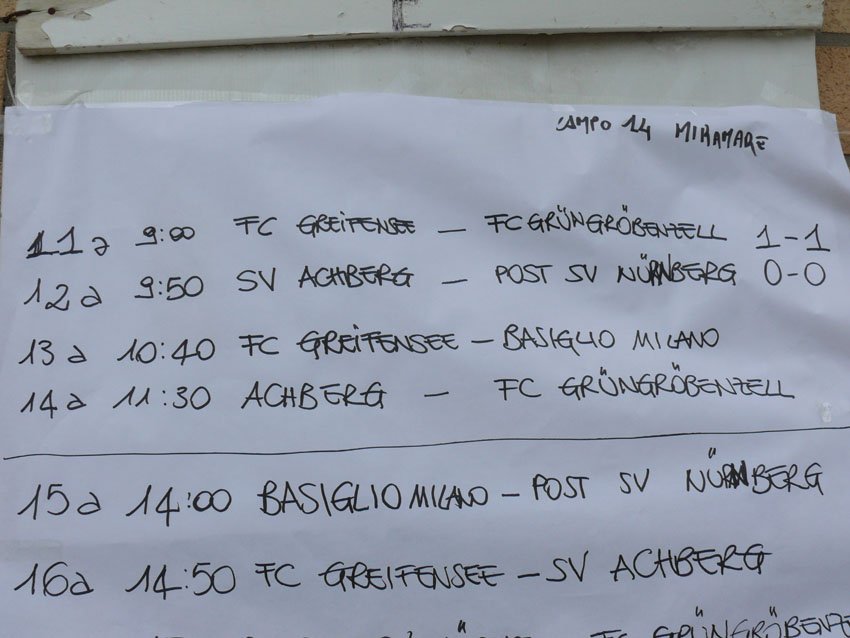 E
CAMPO 14 MIRAMARE
11a 9:00 FC GREIFENSEE — FC GRÜNGRÖBENZELL 1-1
12a 9:50 SV ACHBERG — POST SV NÜRNBERG 0-0
13a 10:40 FC GREIFENSEE — BASIGLIO MILANO
14a 11:30 ACHBERG — FC GRÜNGRÖBENZELL
15a 14:00 BASIGLIO MILANO — POST SV NÜRNBERG
16a 14:50 FC GREIFENSEE — SV ACHBERG
FC GRÜNGRÖBENZE